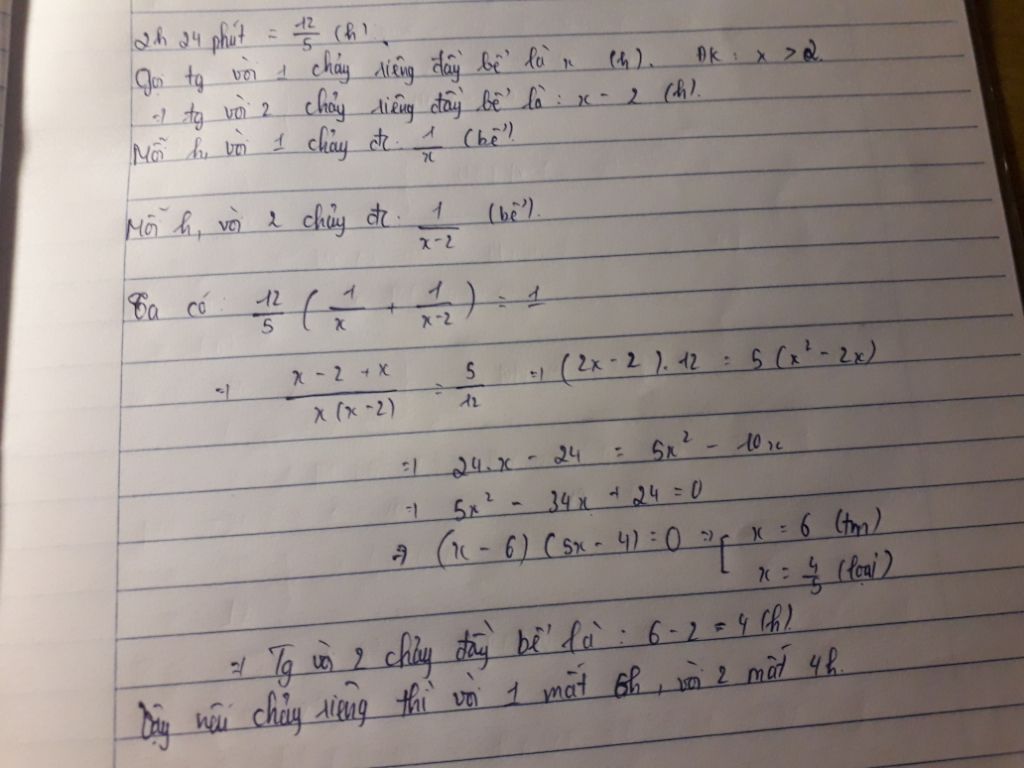 2h 24 phút = 12/5 (h).
Gọi tg vòi 1 chảy riêng đầy bể là x (h). ĐK: x > 2.
=> tg vòi 2 chảy riêng đầy bể là: x - 2 (h).
Mỗi h, vòi 1 chảy đc. 1/x (bể).
Mỗi h, vòi 2 chảy đc. 1/(x-2) (bể).
Ta có: 12/5 (1/x + 1/(x-2)) = 1
=> (x - 2 + x)/(x(x-2)) = 5/12 => (2x - 2).12 = 5(x² - 2x)
=> 24.x - 24 = 5x² - 10x
=> 5x² - 34x + 24 = 0
=> (x - 6)(5x - 4) = 0 => [ x = 6 (tm)
x = 4/5 (loại)
=> Tg vòi 2 chảy đầy bể là: 6 - 2 = 4 (h)
Vậy nếu chảy riêng thì vòi 1 mất 6h, vòi 2 mất 4h.